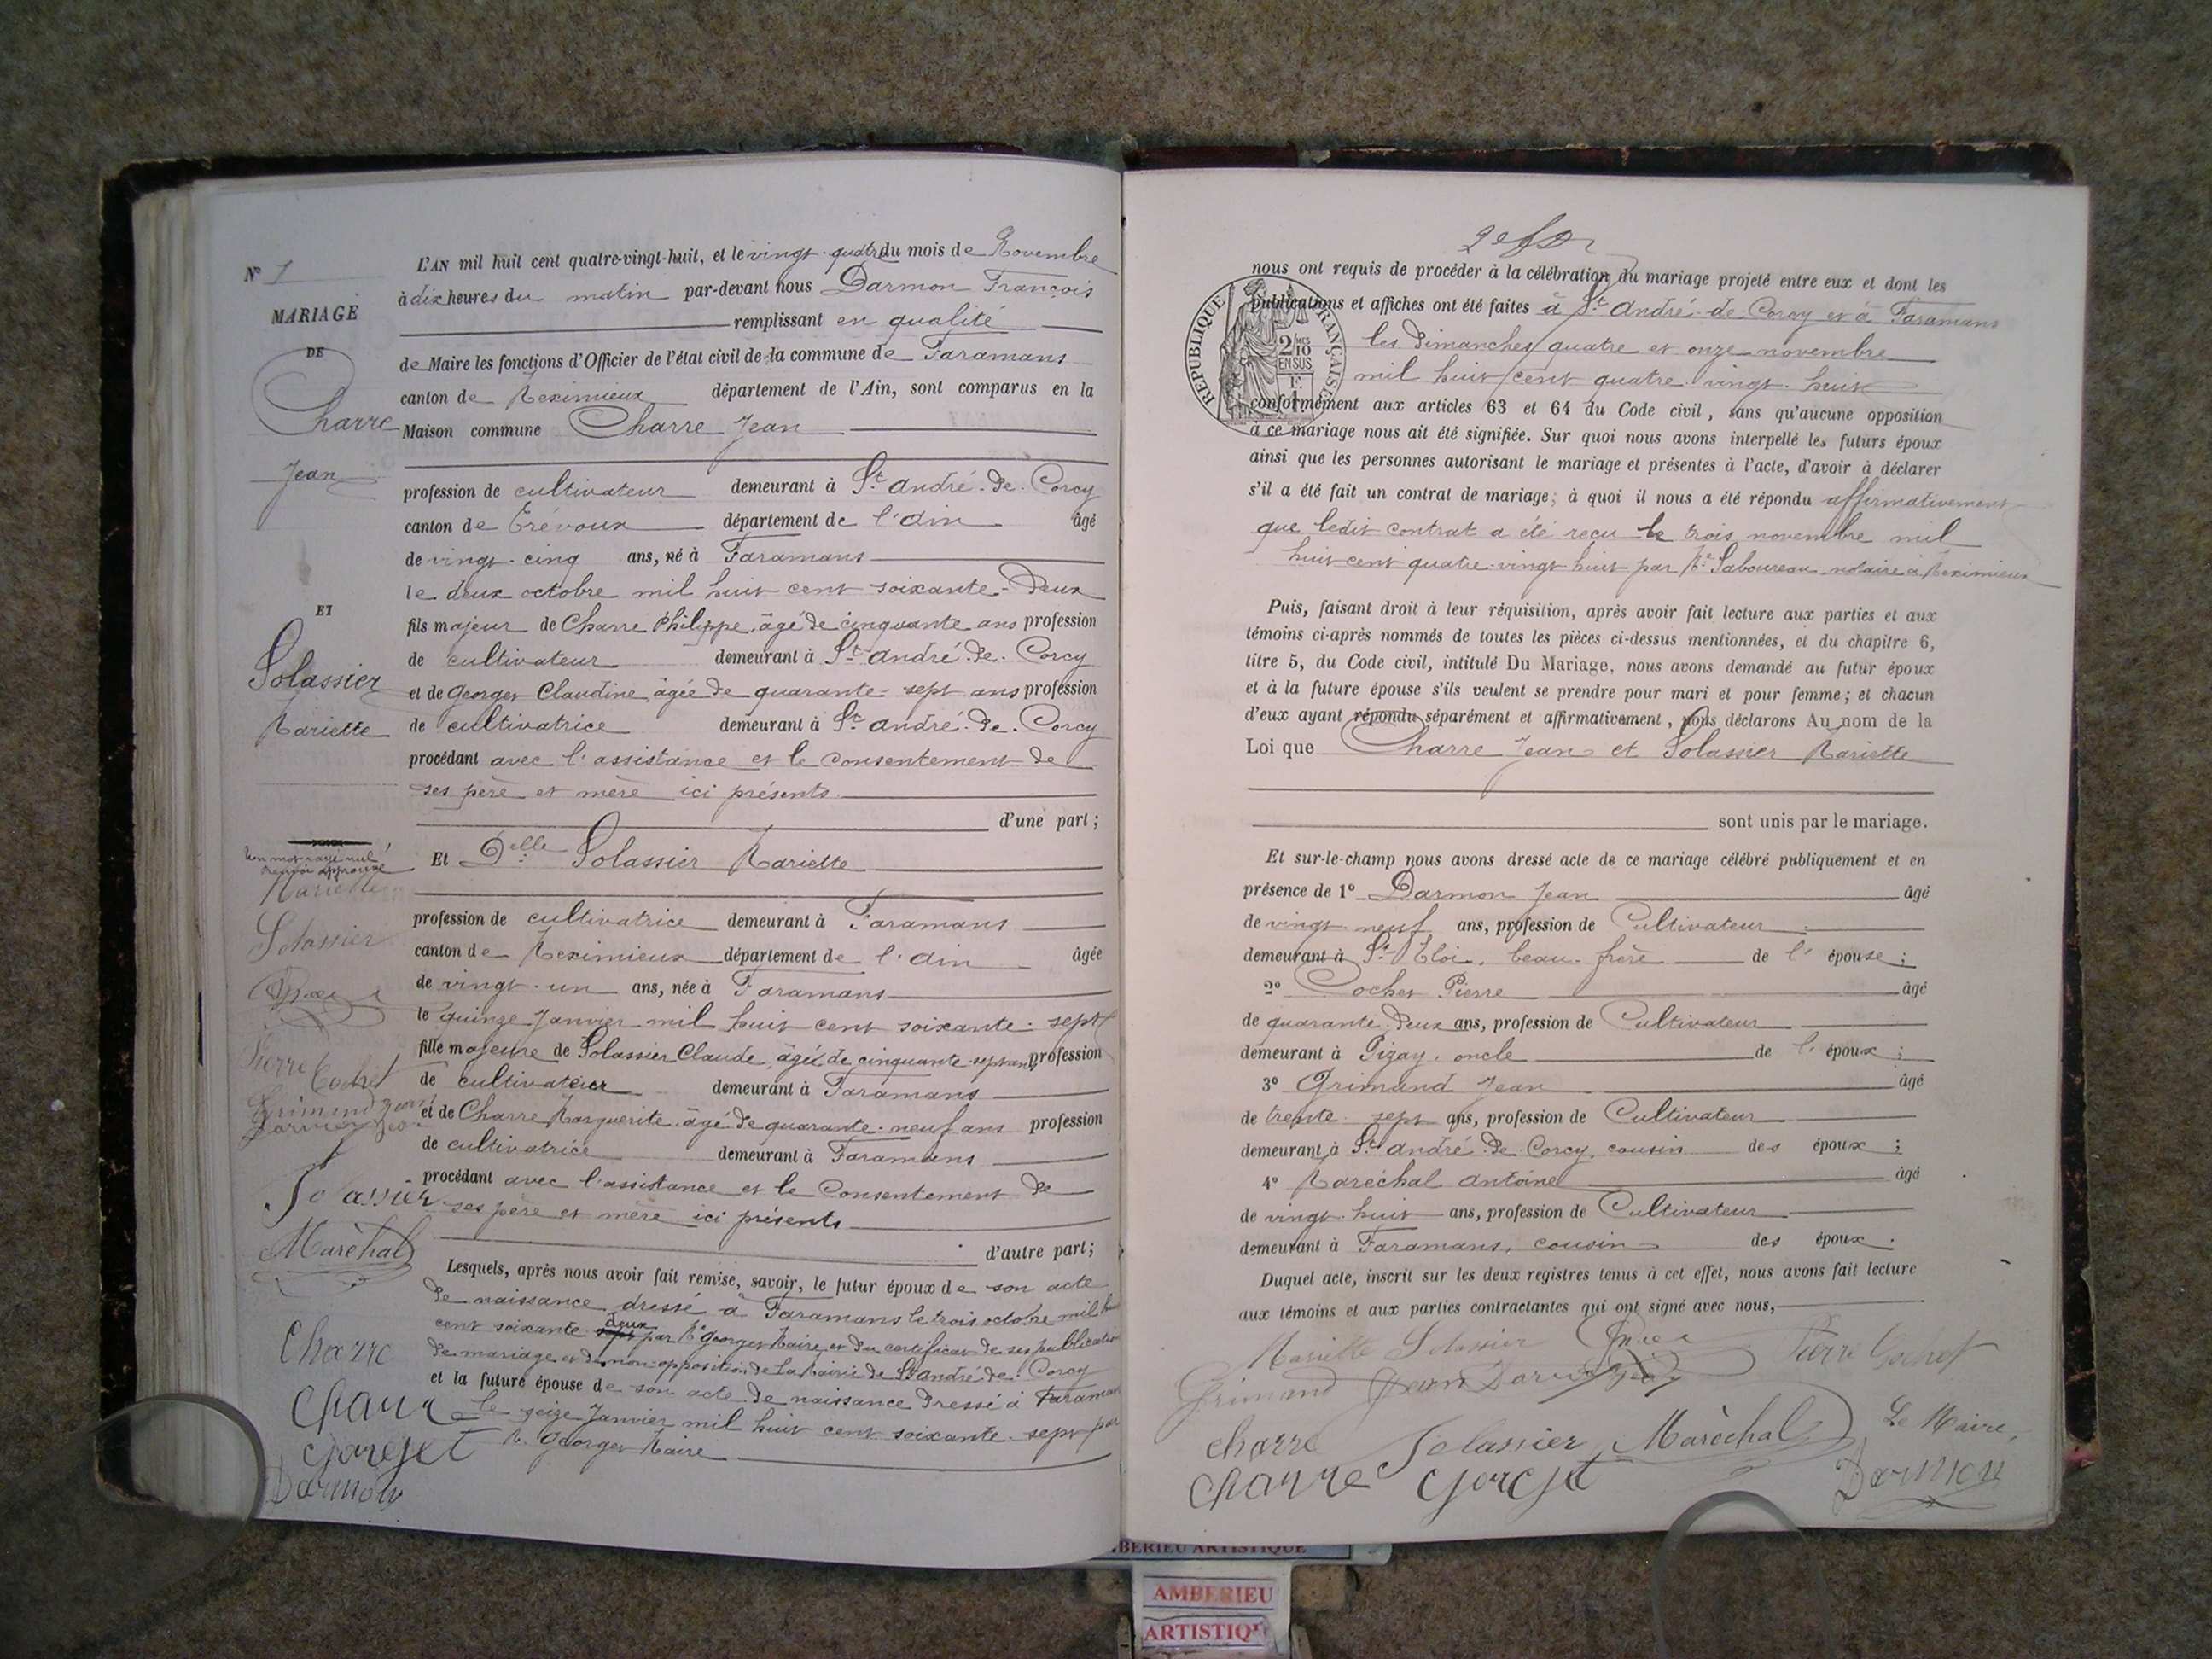 N° 1
MARIAGE
DE
Charre
Jean
ET
Solassier
Mariette
Un mot rayé nul
renvoi approuvé
Mariette
Solassier
Pierre Cochet
Grimand Jean
Darmon Jean
Solassier
Maréchal
Charre
Charre
gorjet
Darmon
L'AN mil huit cent quatre-vingt-huit, et le vingt-quatre du mois de Novembre
à dix heures du matin par-devant nous Darmon François
remplissant en qualité
de Maire les fonctions d'Officier de l'état civil de la commune de Faramans
canton de Meximieux département de l'Ain, sont comparus en la
Maison commune Charre Jean
profession de cultivateur demeurant à St André-de-Corcy
canton de Trévoux département de l'Ain âgé
de vingt-cinq ans, né à Faramans
le deux octobre mil huit cent soixante-deux
fils majeur de Charre Philippe, âgé de cinquante ans profession
de cultivateur demeurant à St André-de-Corcy
et de Georges Claudine, âgée de quarante-sept ans profession
de cultivatrice demeurant à St André-de-Corcy
procédant avec l'assistance et le consentement de
ses père et mère ici présents.
d'une part;
Et Delle Solassier Mariette
profession de cultivatrice demeurant à Faramans
canton de Meximieux département de l'Ain âgée
de vingt-un ans, née à Faramans
le quinze Janvier mil huit cent soixante-sept
fille majeure de Solassier Claude, âgé de cinquante-sept ans profession
de cultivateur demeurant à Faramans
et de Charre Marguerite, âgé de quarante-neuf ans profession
de cultivatrice demeurant à Faramans
procédant avec l'assistance et le Consentement de
ses père et mère ici présents
d'autre part;
Lesquels, après nous avoir fait remise, savoir, le futur époux de son acte
de naissance dressé à Faramans le trois octobre mil huit
deux
cent soixante sept par Mr Georges Maire et du certificat de ses publications
de mariage et de non-opposition de la Mairie de St André-de-Corcy
et la future épouse de son acte de naissance dressé à Faramans
le seize Janvier mil huit cent soixante-sept par
M. Georges Maire
nous ont requis de procéder à la célébration du mariage projeté entre eux et dont les
publications et affiches ont été faites à St André-de-Corcy et à Faramans
les dimanches quatre et onze novembre
mil huit cent quatre-vingt-huit
RÉPUBLIQUE FRANÇAISE
2/10 EN SUS
conformément aux articles 63 et 64 du Code civil, sans qu'aucune opposition
à ce mariage nous ait été signifiée. Sur quoi nous avons interpellé les futurs époux
ainsi que les personnes autorisant le mariage et présentes à l'acte, d'avoir à déclarer
s'il a été fait un contrat de mariage; à quoi il nous a été répondu affirmativement
que ledit contrat a été reçu le trois novembre mil
huit cent quatre-vingt huit par Me Saboureau, notaire à Meximieux
Puis, faisant droit à leur réquisition, après avoir fait lecture aux parties et aux
témoins ci-après nommés de toutes les pièces ci-dessus mentionnées, et du chapitre 6,
titre 5, du Code civil, intitulé Du Mariage, nous avons demandé au futur époux
et à la future épouse s'ils veulent se prendre pour mari et pour femme; et chacun
d'eux ayant répondu séparément et affirmativement, nous déclarons Au nom de la
Loi que Charre Jean et Solassier Mariette
sont unis par le mariage.
Et sur-le-champ nous avons dressé acte de ce mariage célébré publiquement et en
présence de 1° Darmon Jean âgé
de vingt-neuf ans, profession de Cultivateur
demeurant à St Eloi, beau-frère de l'épouse;
2° Cochet Pierre âgé
de quarante-deux ans, profession de Cultivateur
demeurant à Pizay, oncle de l'époux;
3° Grimand Jean âgé
de trente-sept ans, profession de Cultivateur
demeurant à St André-de-Corcy, cousin des époux;
4° Maréchal Antoine âgé
de vingt-huit ans, profession de Cultivateur
demeurant à Faramans, cousin des époux.
Duquel acte, inscrit sur les deux registres tenus à cet effet, nous avons fait lecture
aux témoins et aux parties contractantes qui ont signé avec nous,
Mariette Solassier Pierre Cochet
Grimand Jean Darmon Jean
Charre Solassier Maréchal Le Maire,
Charre gorjet Darmon
AMBERIEU ARTISTIQUE
AMBERIEU
ARTISTIQ